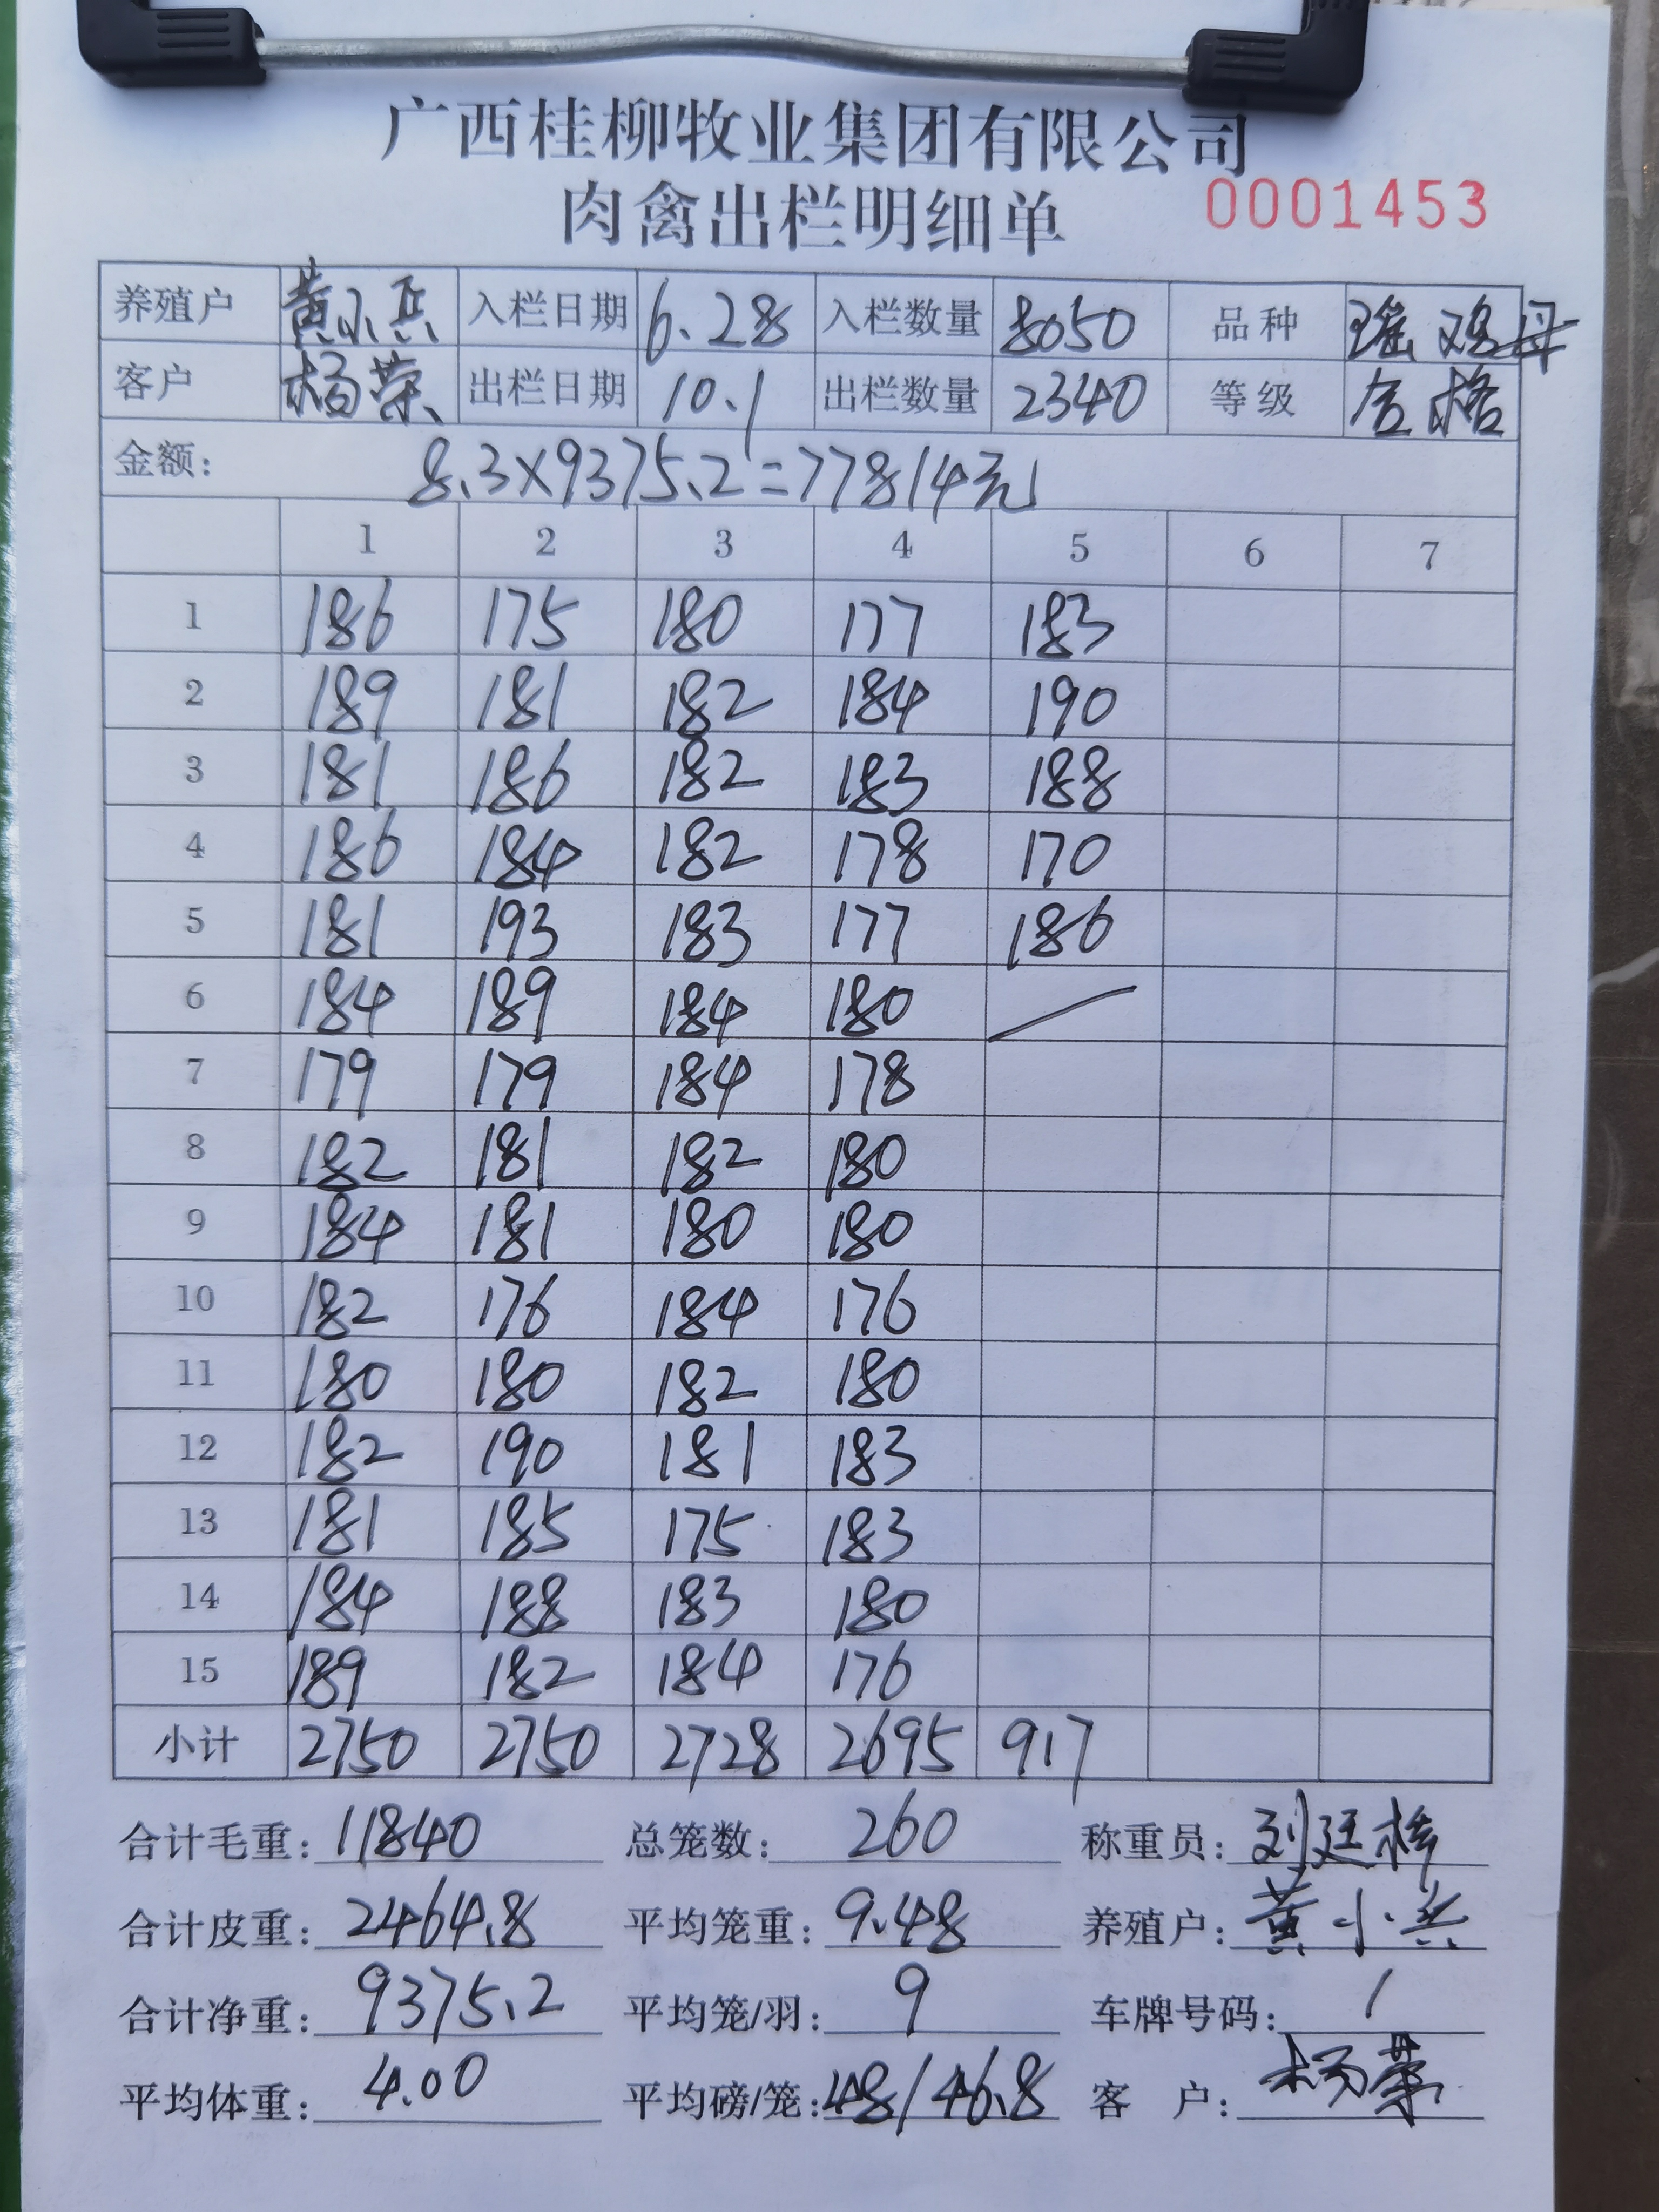 广西桂柳牧业集团有限公司
肉禽出栏明细单 0001453
养殖户 黄小兵 入栏日期 6.28 入栏数量 8050 品种 瑶鸡母
客户 杨荣 出栏日期 10.1 出栏数量 2340 等级 合格
金额: 8.3×9375.2=77814元
1 2 3 4 5 6 7
1 186 175 180 177 183
2 189 181 182 184 190
3 181 186 182 183 188
4 186 184 182 178 170
5 181 193 183 177 186
6 184 189 184 180
7 179 179 184 178
8 182 181 182 180
9 184 181 180 180
10 182 176 184 176
11 180 180 182 180
12 182 190 181 183
13 181 185 175 183
14 184 188 183 180
15 189 182 184 176
小计 2750 2750 2728 2695 917
合计毛重: 11840 总笼数: 260 称重员: 刘廷
合计皮重: 2464.8 平均笼重: 9.48 养殖户: 黄小兵
合计净重: 9375.2 平均笼/羽: 9 车牌号码: /
平均体重: 4.00 平均磅/笼: 48/46.8 客户: 杨荣